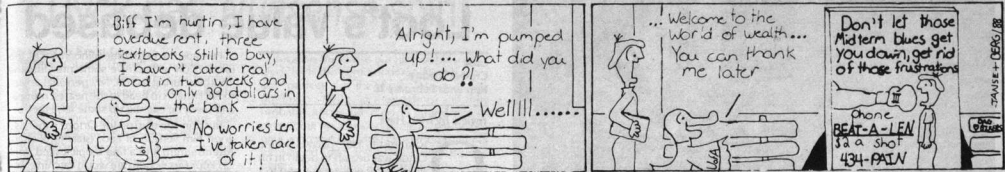 Biff I'm hurtin, I have
overdue rent, three
textbooks still to buy,
I haven't eaten real
food in two weeks and
only 39 dollars in
the bank
No worries Len
I've taken care
of it!
UofA
Alright, I'm pumped
up!... What did you
do?!
Wellllll......
...Welcome to the
world of wealth...
You can thank
me later
UofA
Don't let those
Midterm blues get
you down, get rid
of those frustrations
phone
BEAT-A-LEN
$2 a shot
434-PAIN
JANSE + DERG/88